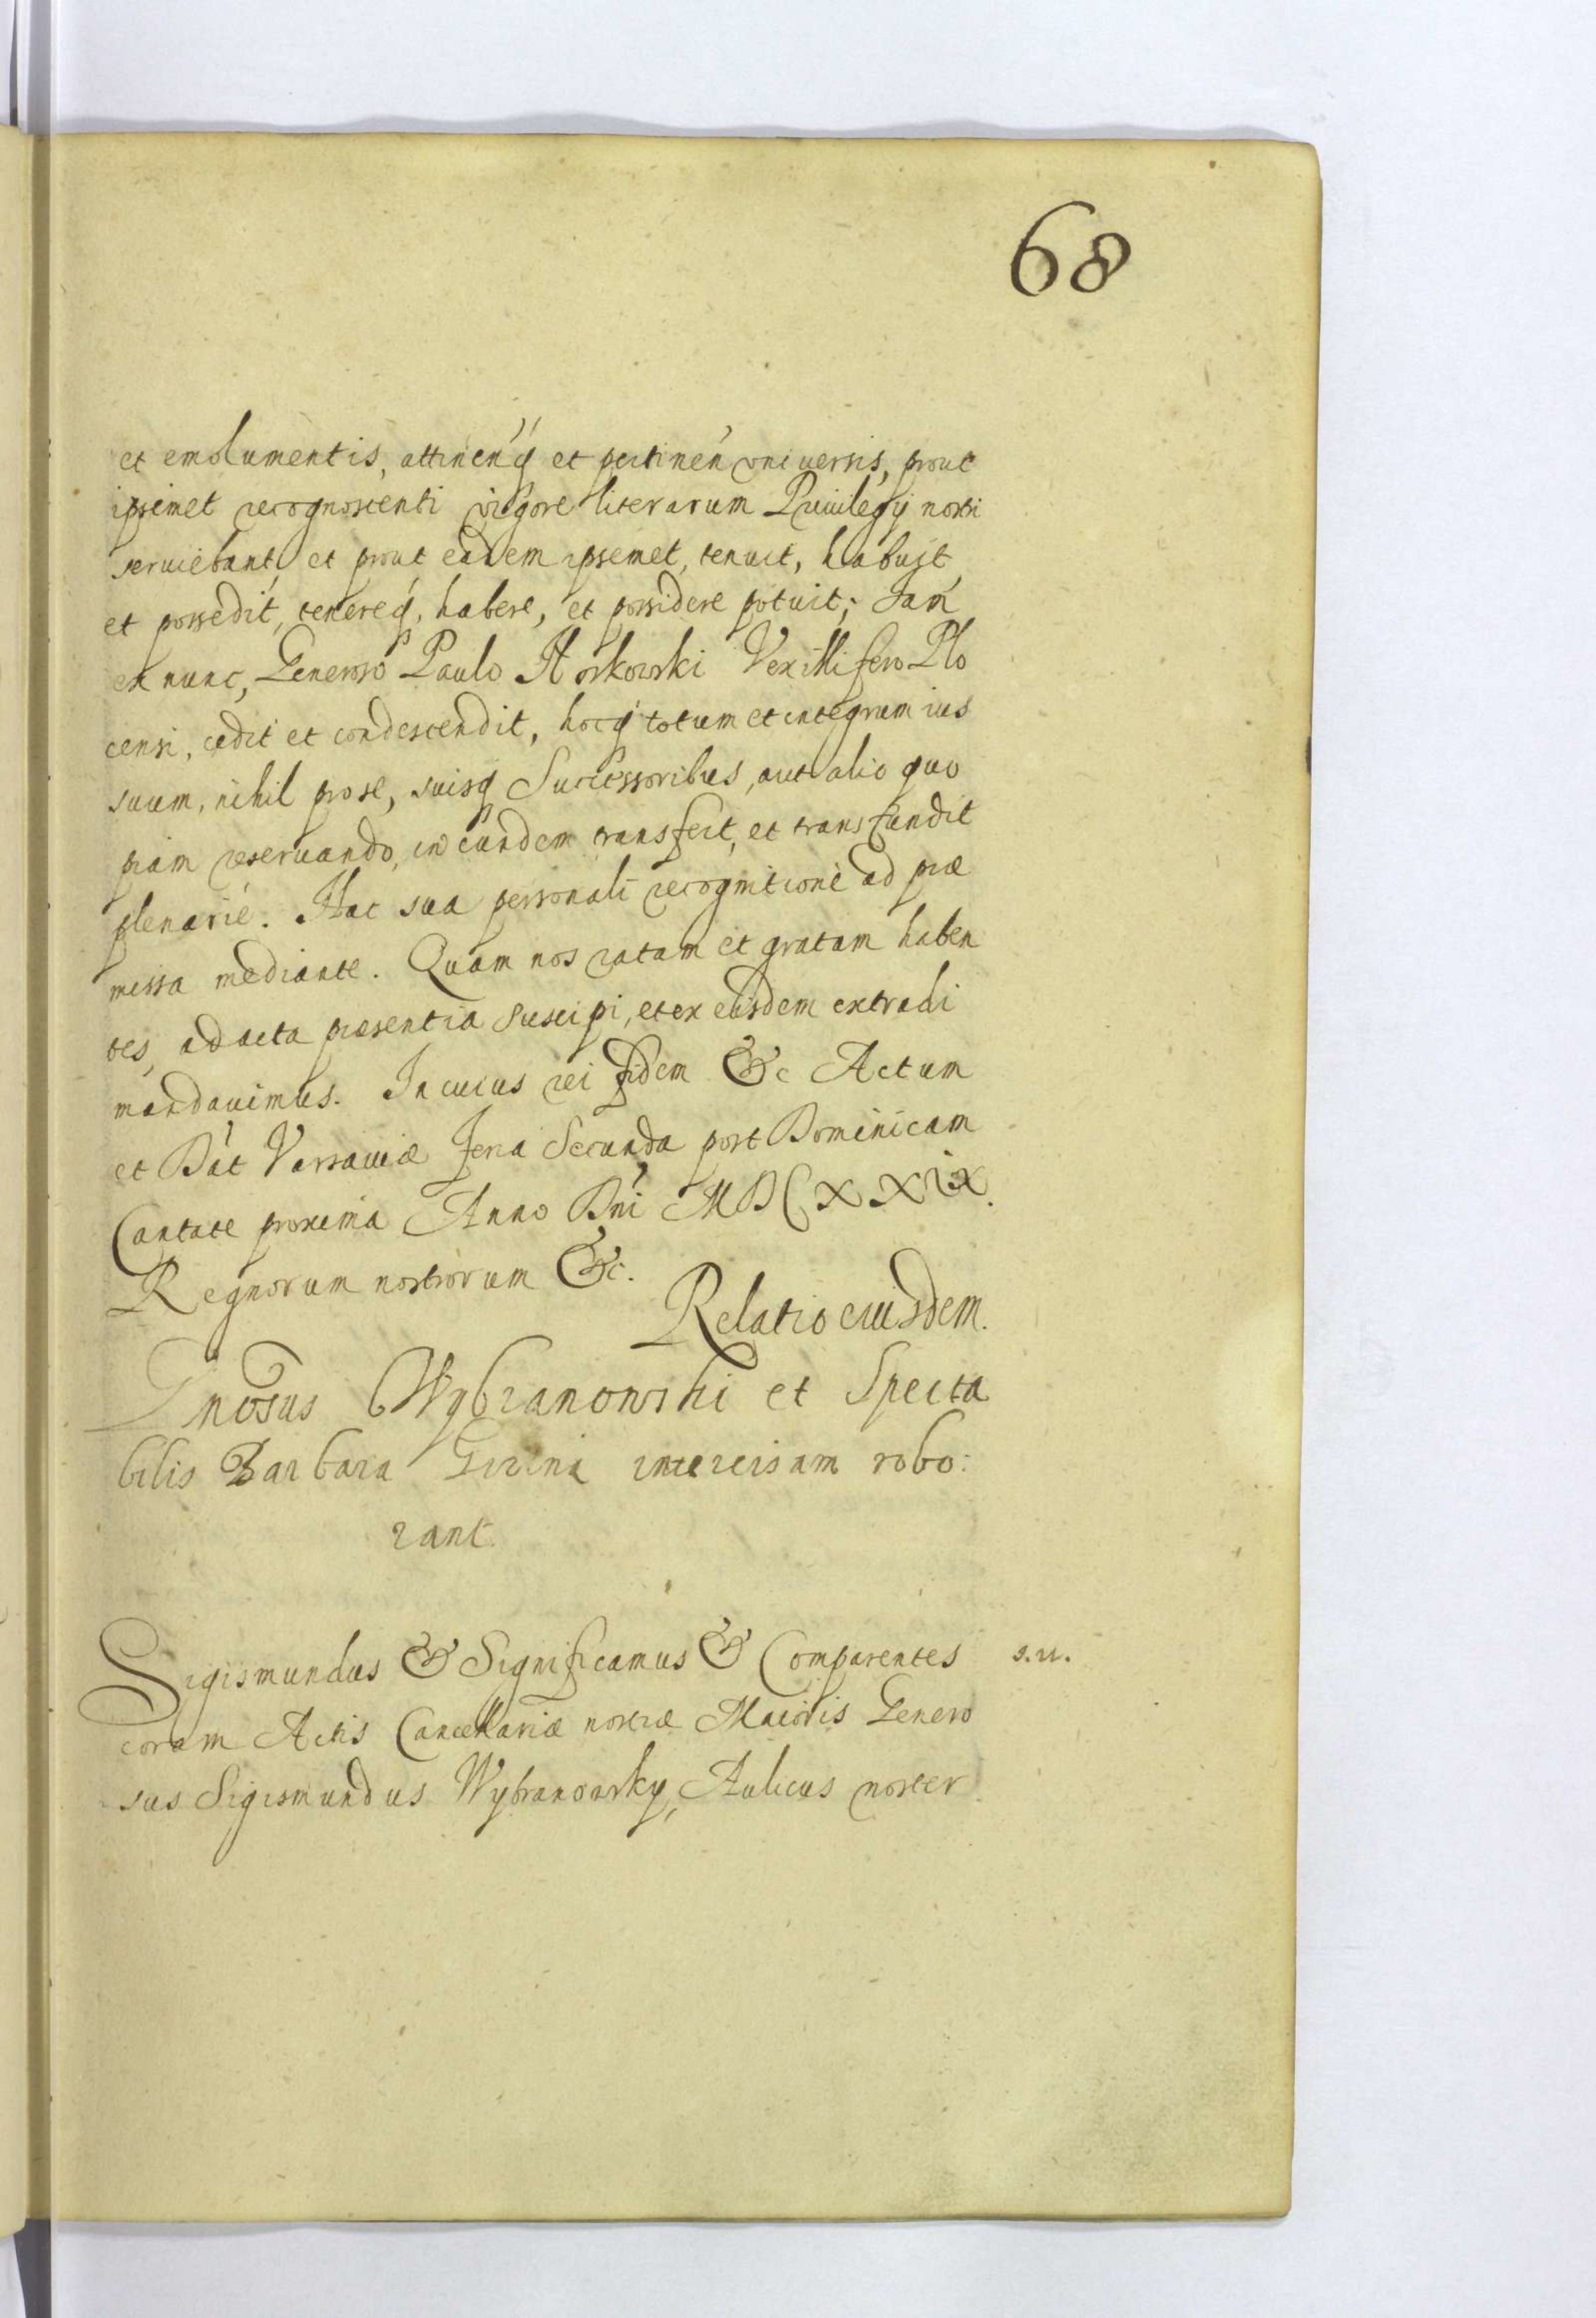 68
et emolumentis, attinen´q et pertinen´ vniuersis, prout
ipsemet recognoscenti vigore literarum Priuilegÿ nostri
seruiebant, et prout eadem ipsemet, tenuit, habuit,
et possedit, tenereq, habere, et possidere potuit; Iam
ex nunc, Generoso Paulo Vexillifero Plo
censi, cedit et condescendit, hocq totum et integrum ius
suum, nihil pro se, suisq Successoribus, aut alio quo
piam reseruando, in eundem transfert, et transfundit
plenariè. Hac sua personali recognitione ad præ
missa mediante. Quam nos ratam et gratam haben
tes, ad acta præsentia suscipi, et ex eisdem extradi
mandauimus. In cuius rei fidem &c Actum
et Dat Varsauiæ Feria Secunda post Dominicam
Cantate proxima Anno Dni MDCXXIX.
Regnorum nostrorum &c.
Relatio eiusdem.
Gnosus Wybranowski et Specta
bilis Barbara intercisam robo:
rant.
Sigismundus & Significamus & Comparentes s.u.
coram Actis Cancellariæ nostræ Maioris Genero
sus Sigismundus Wybranowsky, Aulicus noster